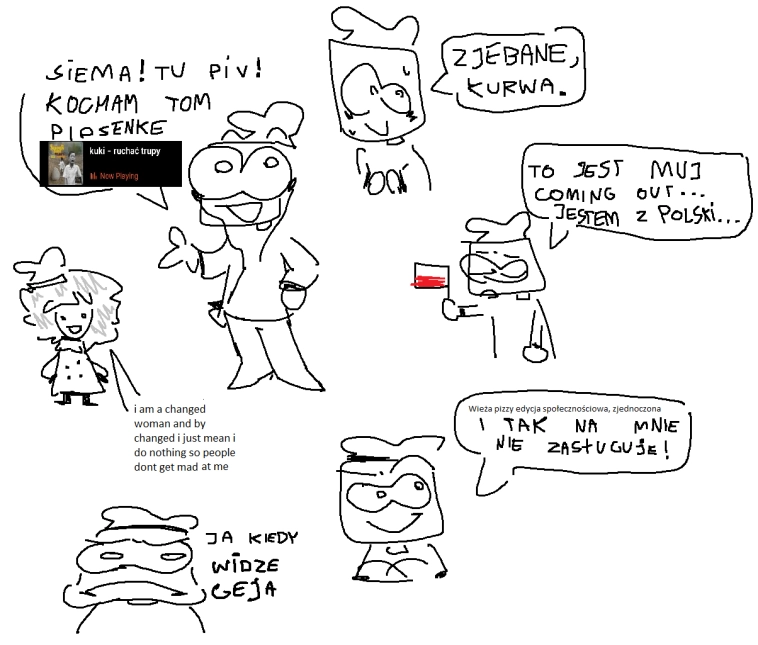 SIEMA! TU PIV!
KOCHAM TOM
PIOSENKE
kuki - ruchać trupy
Now Playing
ZJEBANE,
KURWA.
TO JEST MUJ
COMING OUT...
JESTEM Z POLSKI...
i am a changed
woman and by
changed i just mean i
do nothing so people
dont get mad at me
Wieża pizzy edycja społecznościowa, zjednoczona
I TAK NA MNIE
NIE ZASŁUGUJE!
JA KIEDY
WIDZE
GEJA